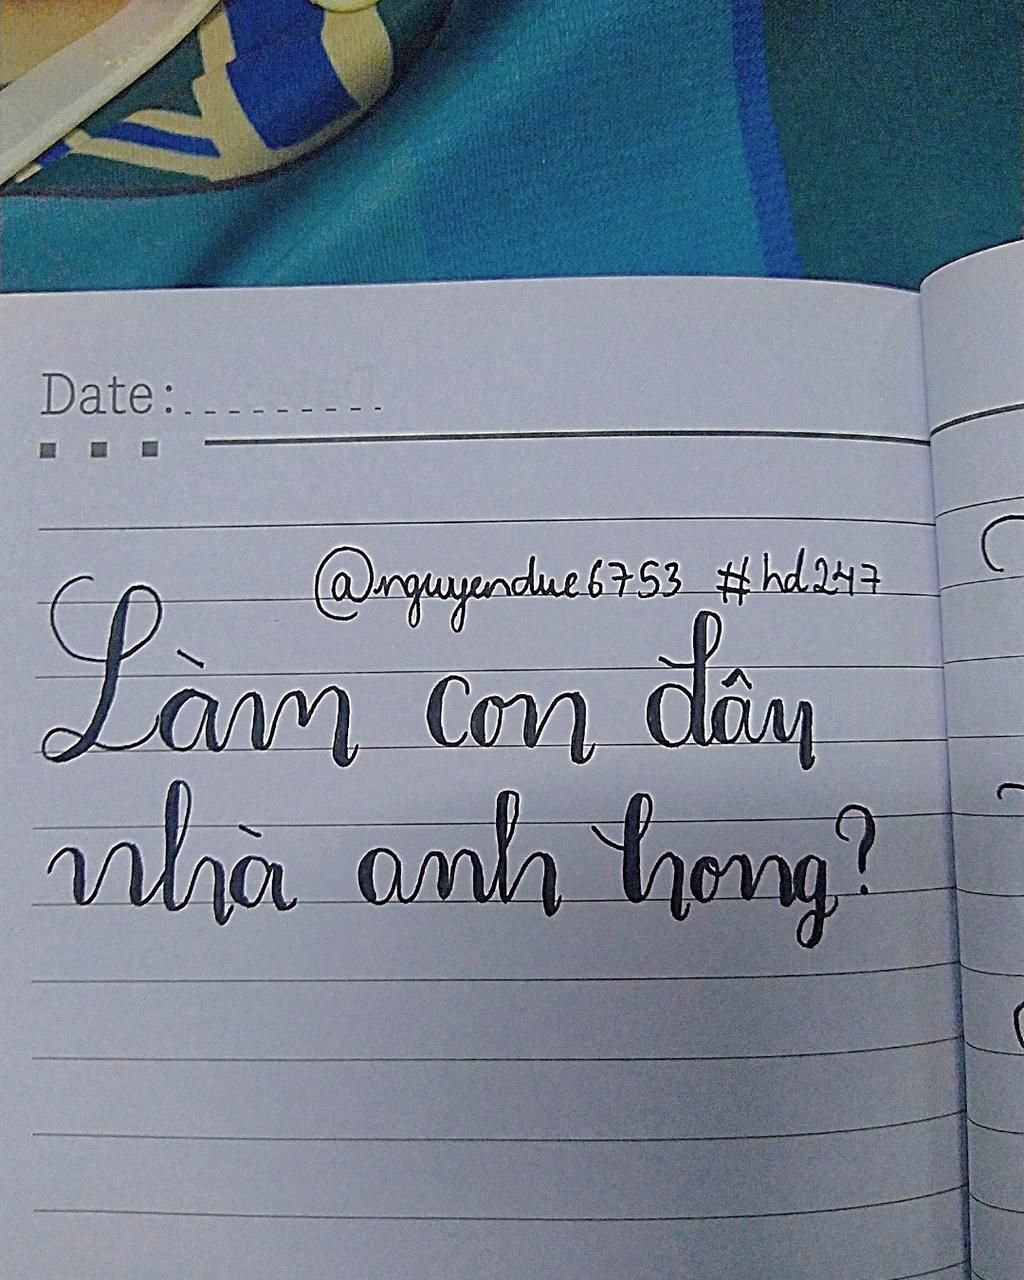 Date:
@nguyendue6753 #hd247
Làm con dâu
nhà anh hong?